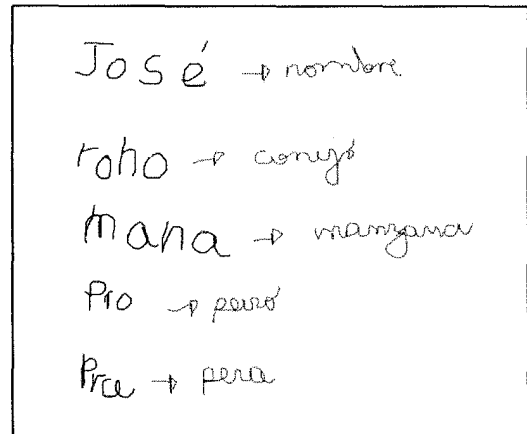 José → nombre
roho → conejo
mana → manzana
Pro → perro
Pra → pera